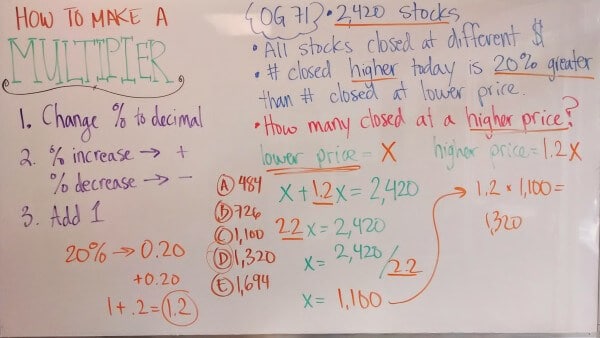 HOW TO MAKE A
MULTIPLIER
1. Change % to decimal
2. % increase → +
% decrease → -
3. Add 1
20% → 0.20
+0.20
1 + .2 = 1.2
{OG 71} • 2,420 stocks
• All stocks closed at different $
• # closed higher today is 20% greater
than # closed at lower price.
• How many closed at a higher price?
lower price = X
higher price = 1.2X
A 484
B 726
C 1,100
D 1,320
E 1,694
X + 1.2X = 2,420
2.2X = 2,420
X = 2,420/2.2
X = 1,100
→ 1.2 × 1,100 =
1,320